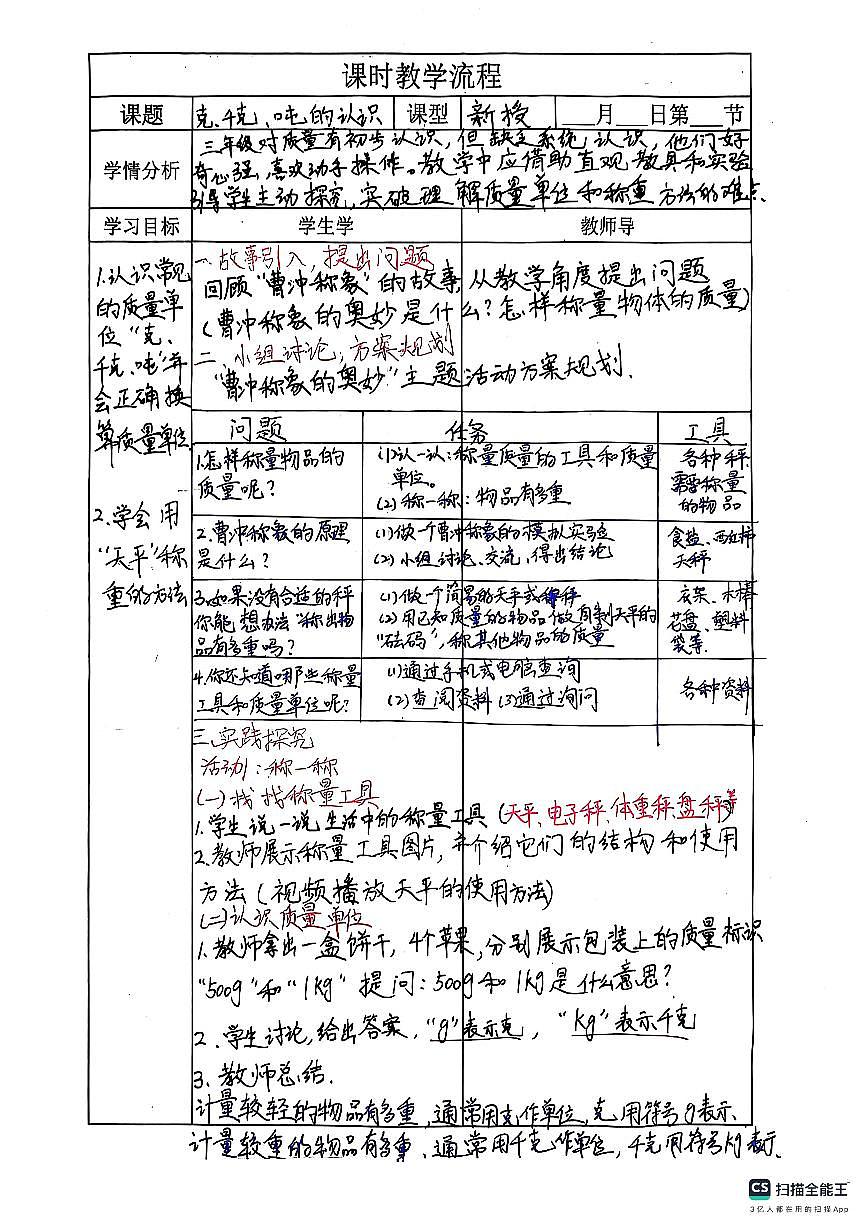 课时教学流程
课题 克、千克、吨的认识 课型 新授 ___月___日第___节
学情分析
三年级对质量有初步认识，但缺乏系统认识，他们好
奇心强，喜欢动手操作。教学中应借助直观教具和实验
引导学生主动探究，突破理解质量单位和称重方法的难点.
学习目标 学生学 教师导
1.认识常见
的质量单
位“克、
千克、吨”并
会正确换
算质量单位
2.学会用
“天平”称
重的方法
一.故事引入，提出问题
回顾“曹冲称象”的故事，从数学角度提出问题
(曹冲称象的奥妙是什么？怎样称量物体的质量)
二、小组讨论，方案规划
“曹冲称象的奥妙”主题活动方案规划.
问题 任务 工具
1.怎样称量物品的
质量呢？
(1)认一认：称量质量的工具和质量
单位。
(2)称一称：物品有多重
各种秤、
需要称量
的物品
2.曹冲称象的原理
是什么？
(1)做一个曹冲称象的模拟实验
(2)小组讨论、交流，得出结论
食盐、西红柿
天秤
3.如果没有合适的秤
你能想办法“称出物
品有多重吗？
(1)做一个简易的天平或秤
(2)用已知质量的物品做自制天平的
“砝码”，称其他物品的质量
衣架、木棒
花盘、塑料
袋等.
4.你还知道哪些称量
工具和质量单位呢？
(1)通过手机或电脑查询
(2)查阅资料 (3)通过询问
各种资料
三.实践探究
活动1：称一称
(一)找找称量工具
1.学生说一说生活中的称量工具(天平、电子秤、体重秤、盘秤等)
2.教师展示称量工具图片，并介绍它们的结构和使用
方法(视频播放天平的使用方法)
(二)认识质量单位
1.教师拿出一盒饼干，4个苹果，分别展示包装上的质量标识
“500g”和“1kg” 提问：500g和1kg是什么意思？
2.学生讨论，给出答案，“g”表示克，“kg”表示千克
3.教师总结.
计量较轻的物品有多重，通常用克作单位，克用符号g表示.
计量较重的物品有多重、通常用千克作单位，千克用符号kg表示.
CS 扫描全能王
3亿人都在用的扫描App